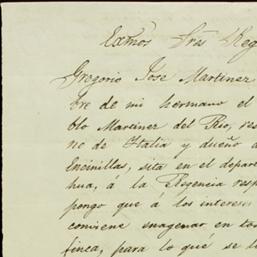 Exmos Srs Reg
Gregorio José Martinez
bre de mi hermano el
blo Martinez del Rio, res
no de Italia y dueño a
Encinillas, sita en el depar
hua, á la Regencia resp
pongo que á los intereses
conviene enagenar en to
finca, para lo que se l